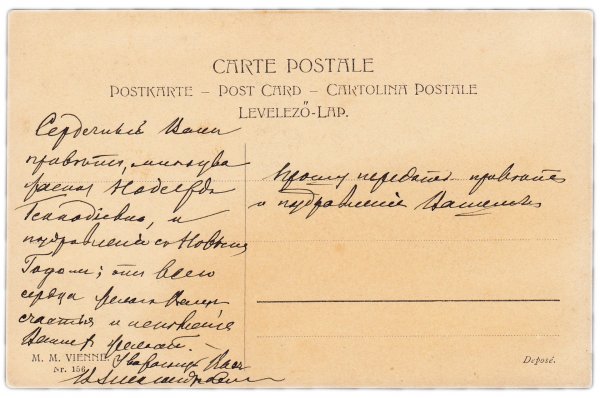 CARTE POSTALE
POSTKARTE – POST CARD – CARTOLINA POSTALE
LEVELEZŐ-LAP.
Сердечныя Вамъ
приветы,
Геннадіевна, и
поздравленія съ Новымъ
Годомъ; отъ всего
сердца желаю Вамъ
счастья и исполненія
Вашихъ желаній.
Уважающій Васъ
Прошу передать приветы
и поздравленія Вашимъ
M. M. VIENNE
Nr. 156
Deposé.